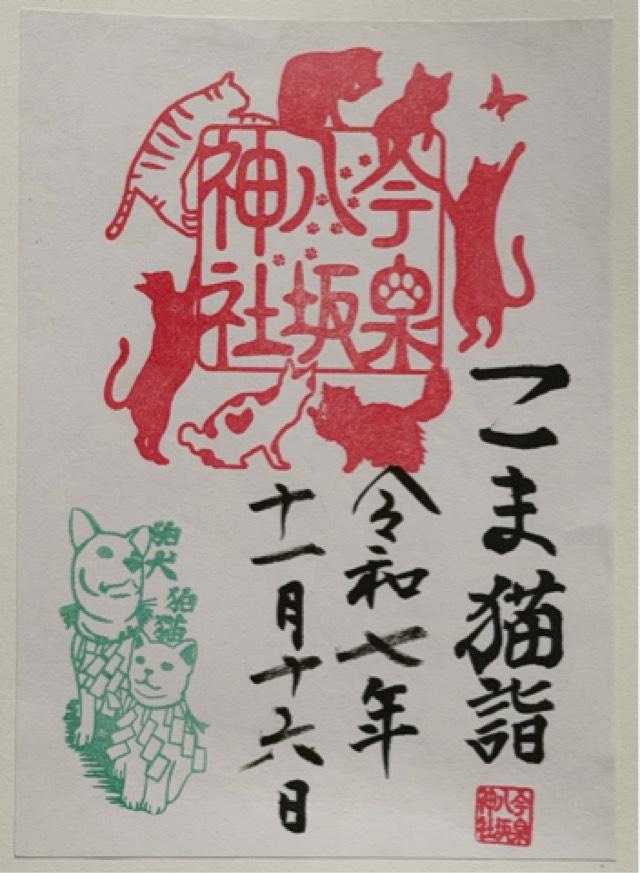 今泉
八坂
神社
こま猫詣
令和七年
十一月十六日
狛犬
狛猫
今泉
八坂
神社